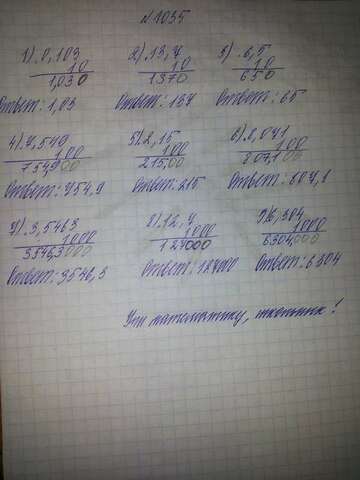 N 1035
1) 0,103 2) 13,7 3) 6,5
10 10 10
1,030 1370 650
Ответ: 1,03 Ответ: 137 Ответ: 65
4) 7,549 5) 2,15 6) 8,071
100 100 100
7549 00 215,00 807,1 00
Ответ: 754,9 Ответ: 215 Ответ: 807,1
7) 3,5463 8) 12,7 9) 6,304
1000 1000 1000
3546,3000 127000 6304,000
Ответ: 3546,3 Ответ: 127000 Ответ: 6304
Учи математику, школьник!